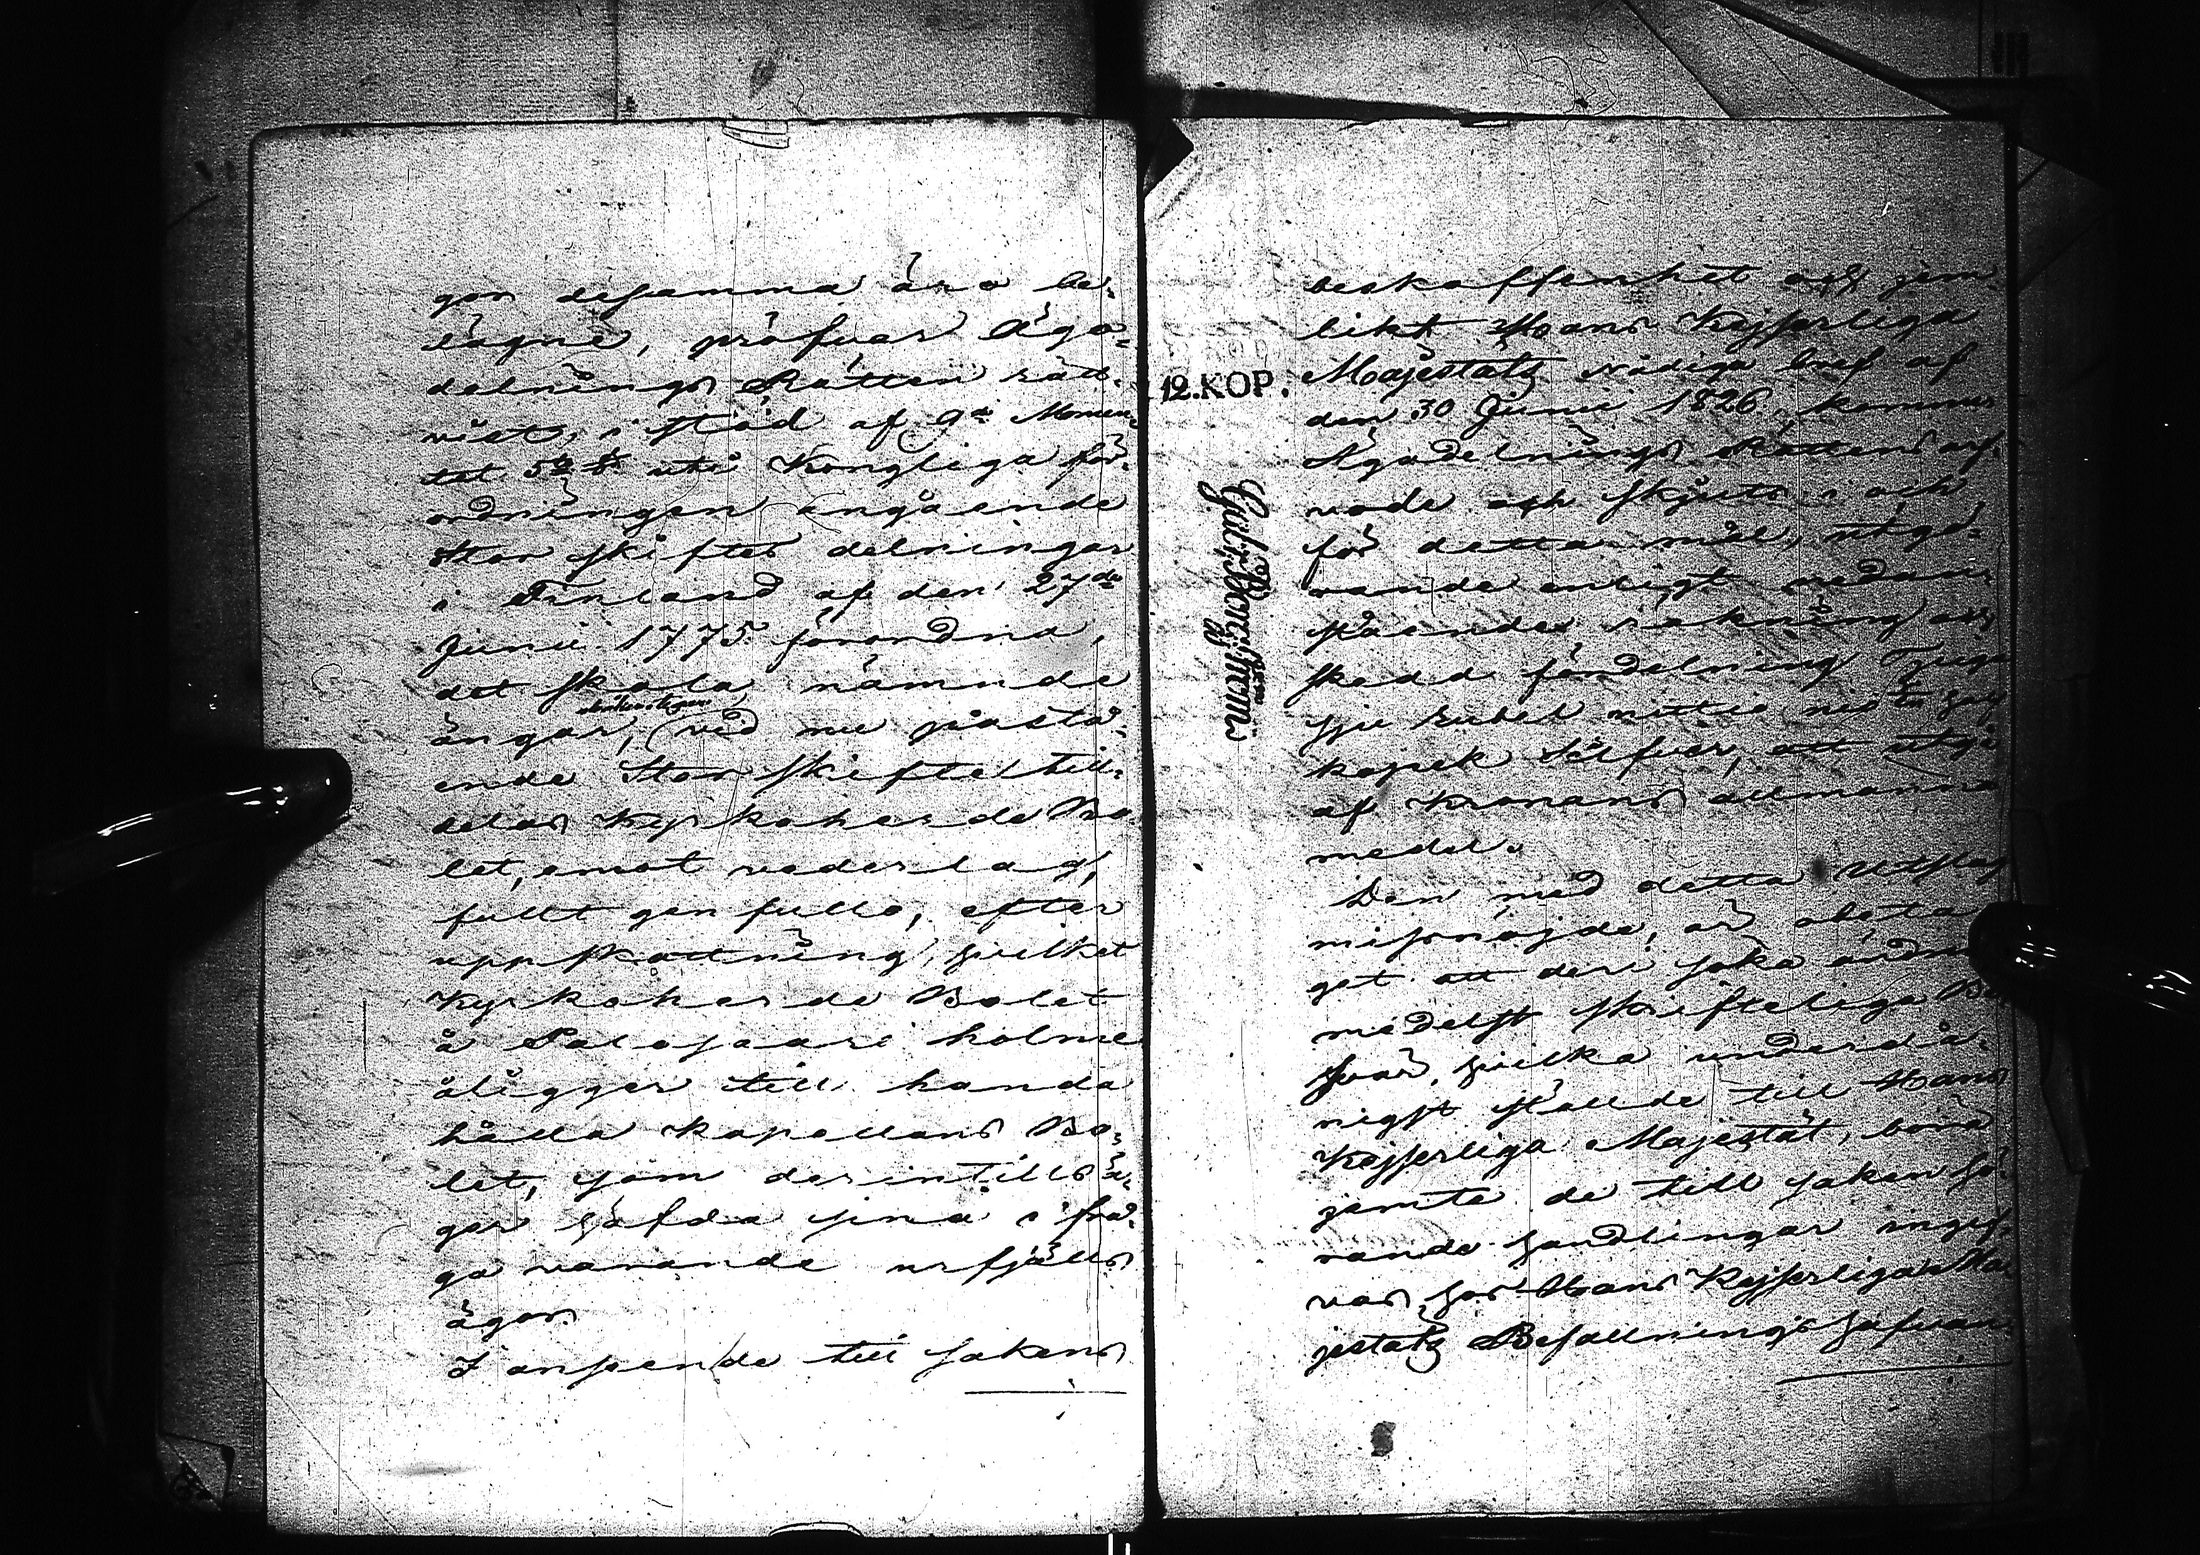 gor desamma äro be-
lägne, pröfvar Ägo-
delnings Rätten rätt-
vist, i stöd af 9de Momen-
tet 5te § uti Kongliga för-
ordningen angående
Storskiftes delningar
i Finland af den 27de
Junii 1775 förordna,
det skola nämnde
ängar, vid nu påstå-
ende Storskifte till-
delas Kyrkoherde Bo-
let, emot vederlag,
fullt gen fullo, efter
uppskattning, hvilket
Kyrkoherde Bolet
å Palosaari holme
ålägger till handa
hålla Kapellans Bo-
let, som derintills ä-
ger häfda sina i frå-
ga varande urfjälls
ägor.
I anseende till sakens
12.KOP.
beskaffenhet och jem-
likt Hans Kejserliga
Majestäts Nådiga bref af
den 30 Junii 1826, kommer
Ägodelnings Rättens arf-
vode och skjuts i och
för detta mål, utgö-
rande enligt nedan-
stående räkning och
skedd fördelning Tjugu
sju rubel nittio
kopek Silfver, att utgå
af Kronans allmänna
medel.
Den med detta Utslag
missnöjde, är obeta-
get att deri söka ändring
medelst skrifteliga Be-
svär, hvilka underdå-
nigst ställde till Hans
Kejserliga Majestät, böra
jemte de till saken hö-
rande handlingar ingif-
vas hos Hans Kejserliga Ma-
jestäts Befallningshafvan-